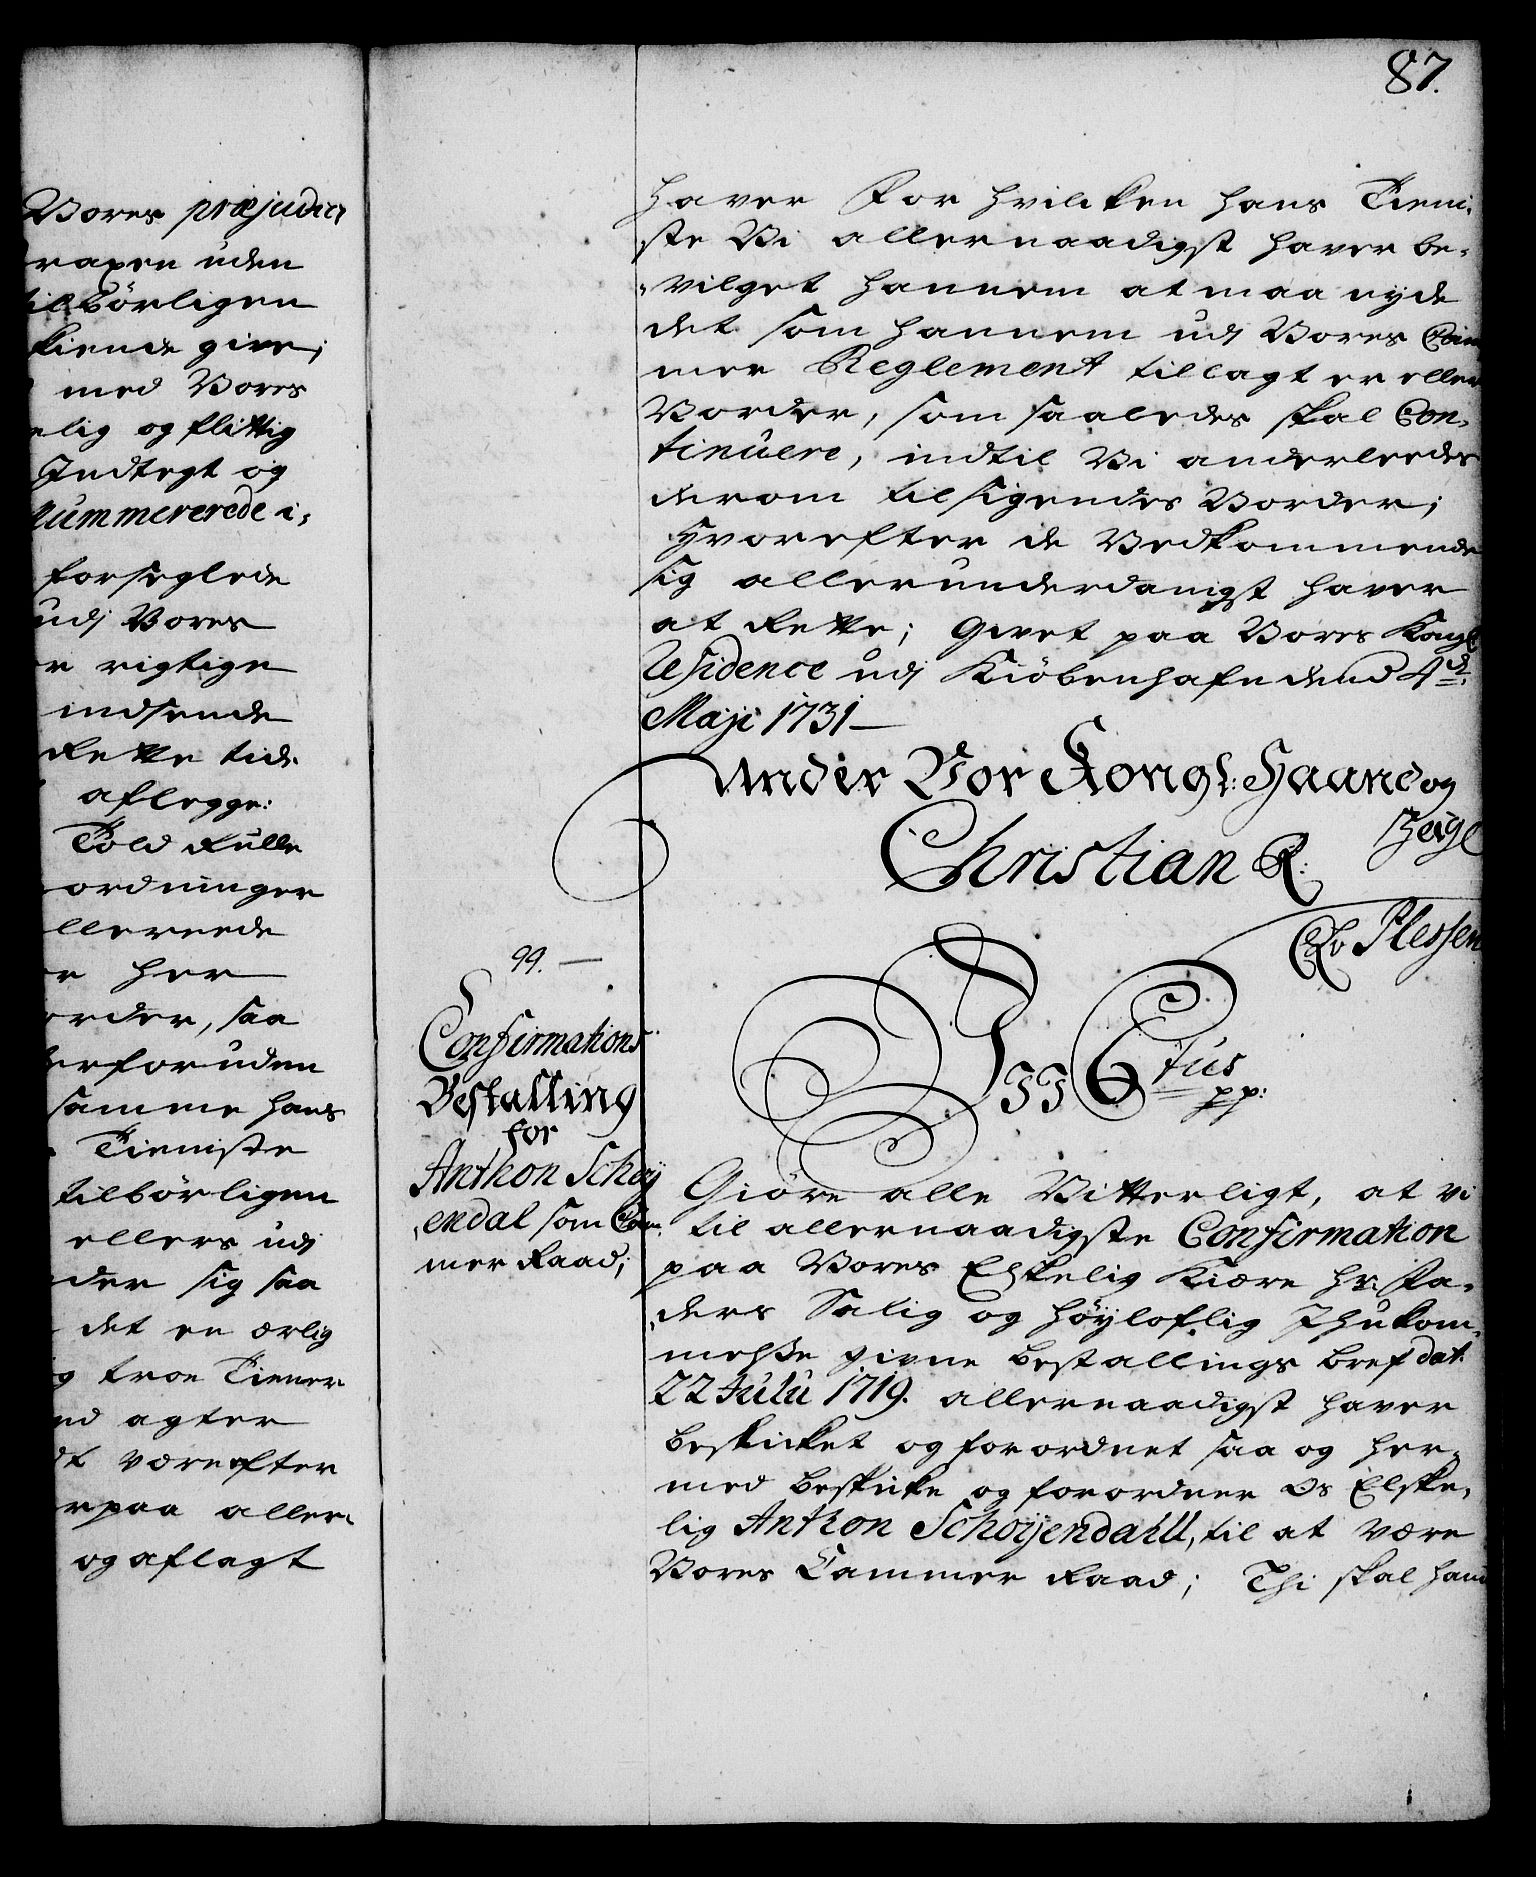 87.
Vores præjudice
raxen uden
tilbörligen
kiende give;
med Vores
elig og flittig
Indtegt og
nummererede i,
forseglede
udj Vores
er rigtige
indsende
Rette tid
aflegge:
Told Rulle
ordninger
llereede
er her
order, saa
derforuden
samme hans
Tieniste
tilbörligen
ellers udj
der sig saa
det en ærlig
g troe Tiener
ed agter
dt være efter
rpaa aller,
og aflagt
haver For hvilcken hans Tieni,
ste Vi allernaadigst haver be,
,vilget hannem at maa nyde
det som hannem udj Vores Cam
mer Reglement tillagt er eller
Vorder, som saaledes skal Con,
tinuere, indtil Vi anderleedes
derom tilsigendes Vorder;
Hvorefter de Vedkommende
sig allerunderdanigst haver
at Rette; Givet paa Vores Kongl
Residence udj Kiöbenhafn dend 4de
Maji 1731
Under Vor Kongl: Haand og
Zeigl
Christian R:
CAv Plessen
99.
Confirmations
Bestalling
for
Anthon Schöy
,endal som Cam,
mer Raad;
Vi C 6tus
pp:
Giöre alle Vitterligt, at vi
til allernaadigste Confirmation
paa Vores Elskelig Kiære Hr: Fa,
,ders Salig og höyloflig Ihukom,
melsse givne bestallings bref dat:
22 Julij 1719. allernaadigst haver
beskicket og forordnet saa og her,
med beskicke og forordner Os Elske,
lig Anthon Schöyendahll, til at være
Vores Cammer Raad; Thi skal hand